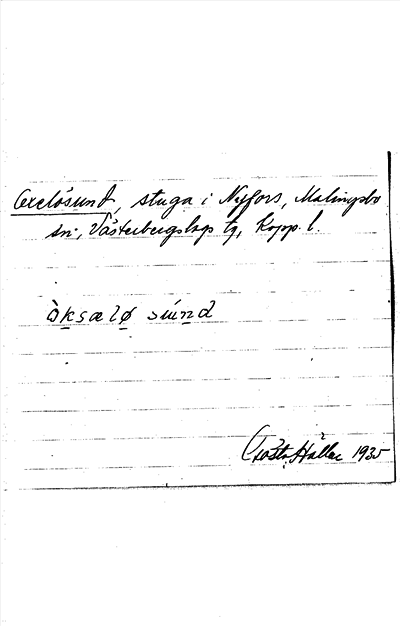 Oxelösund, stuga i Nyfors, Malingsbo
sn., Västerbergslags tg, Kopp. l.
òksælø súnd
Gösta Hallar 1935